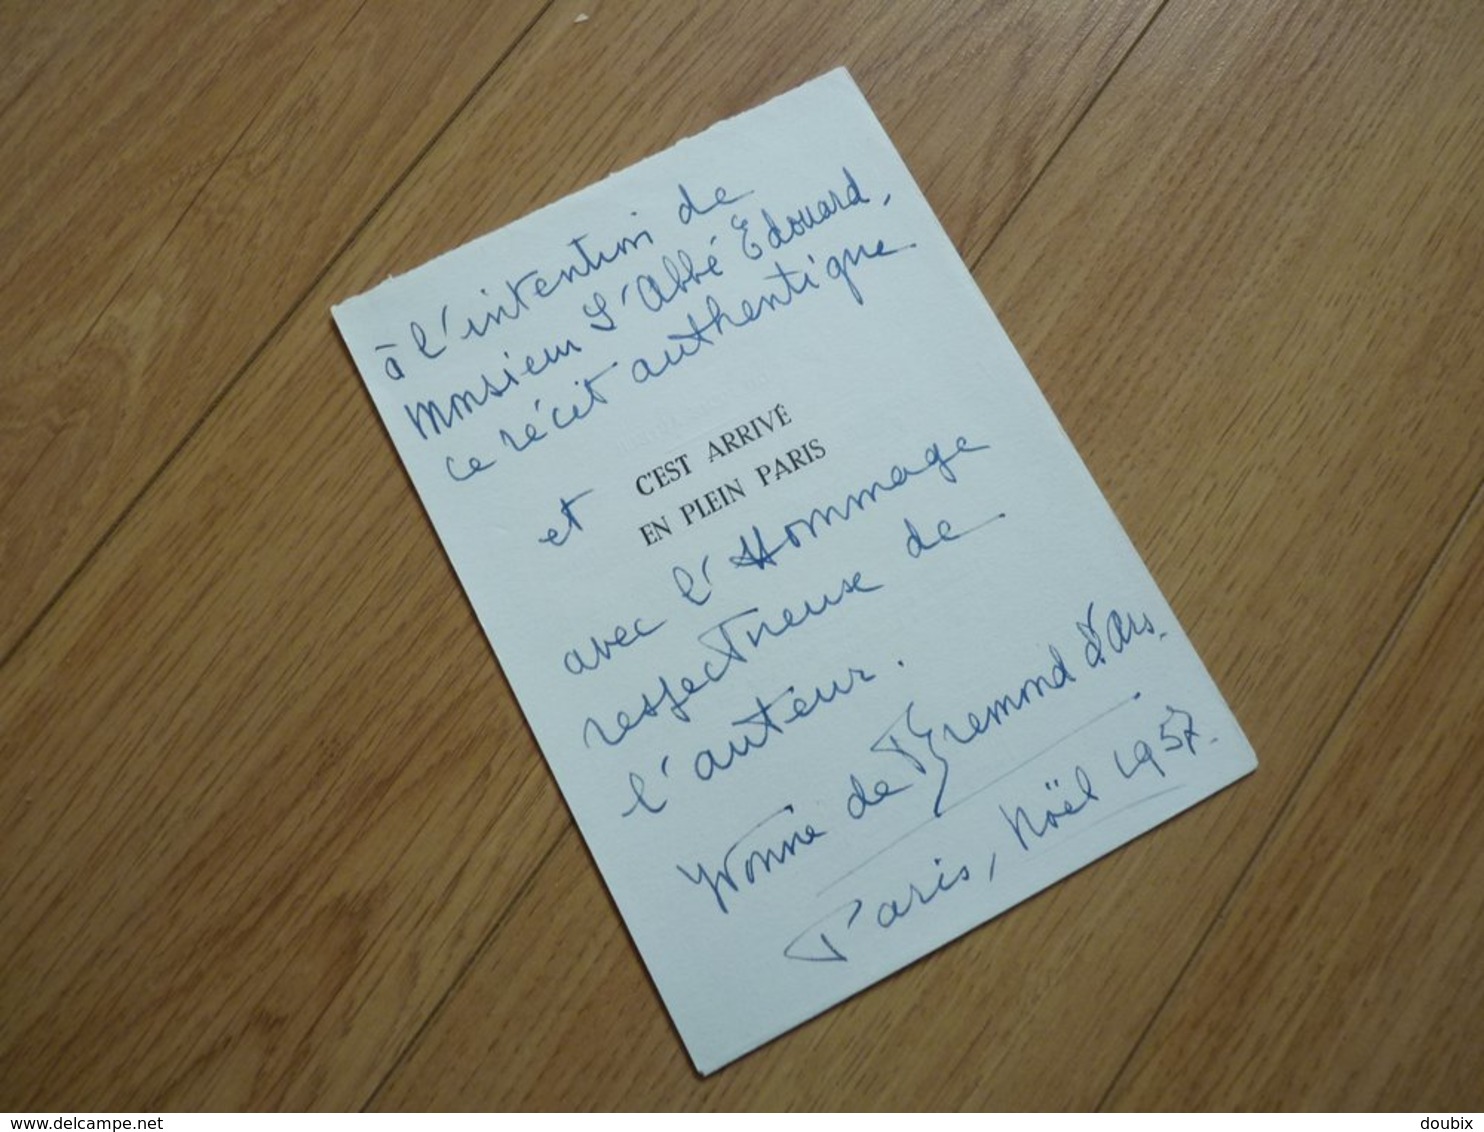 à l'intention de
Monsieur L'Abbé Edouard,
ce récit authentique
C'EST ARRIVÉ
et
EN PLEIN PARIS
avec l'Hommage
respectueux de
l'auteur.
Yvonne de Bremond d'Ars.
Paris, Noël 1957.
delcampe.net
doubix